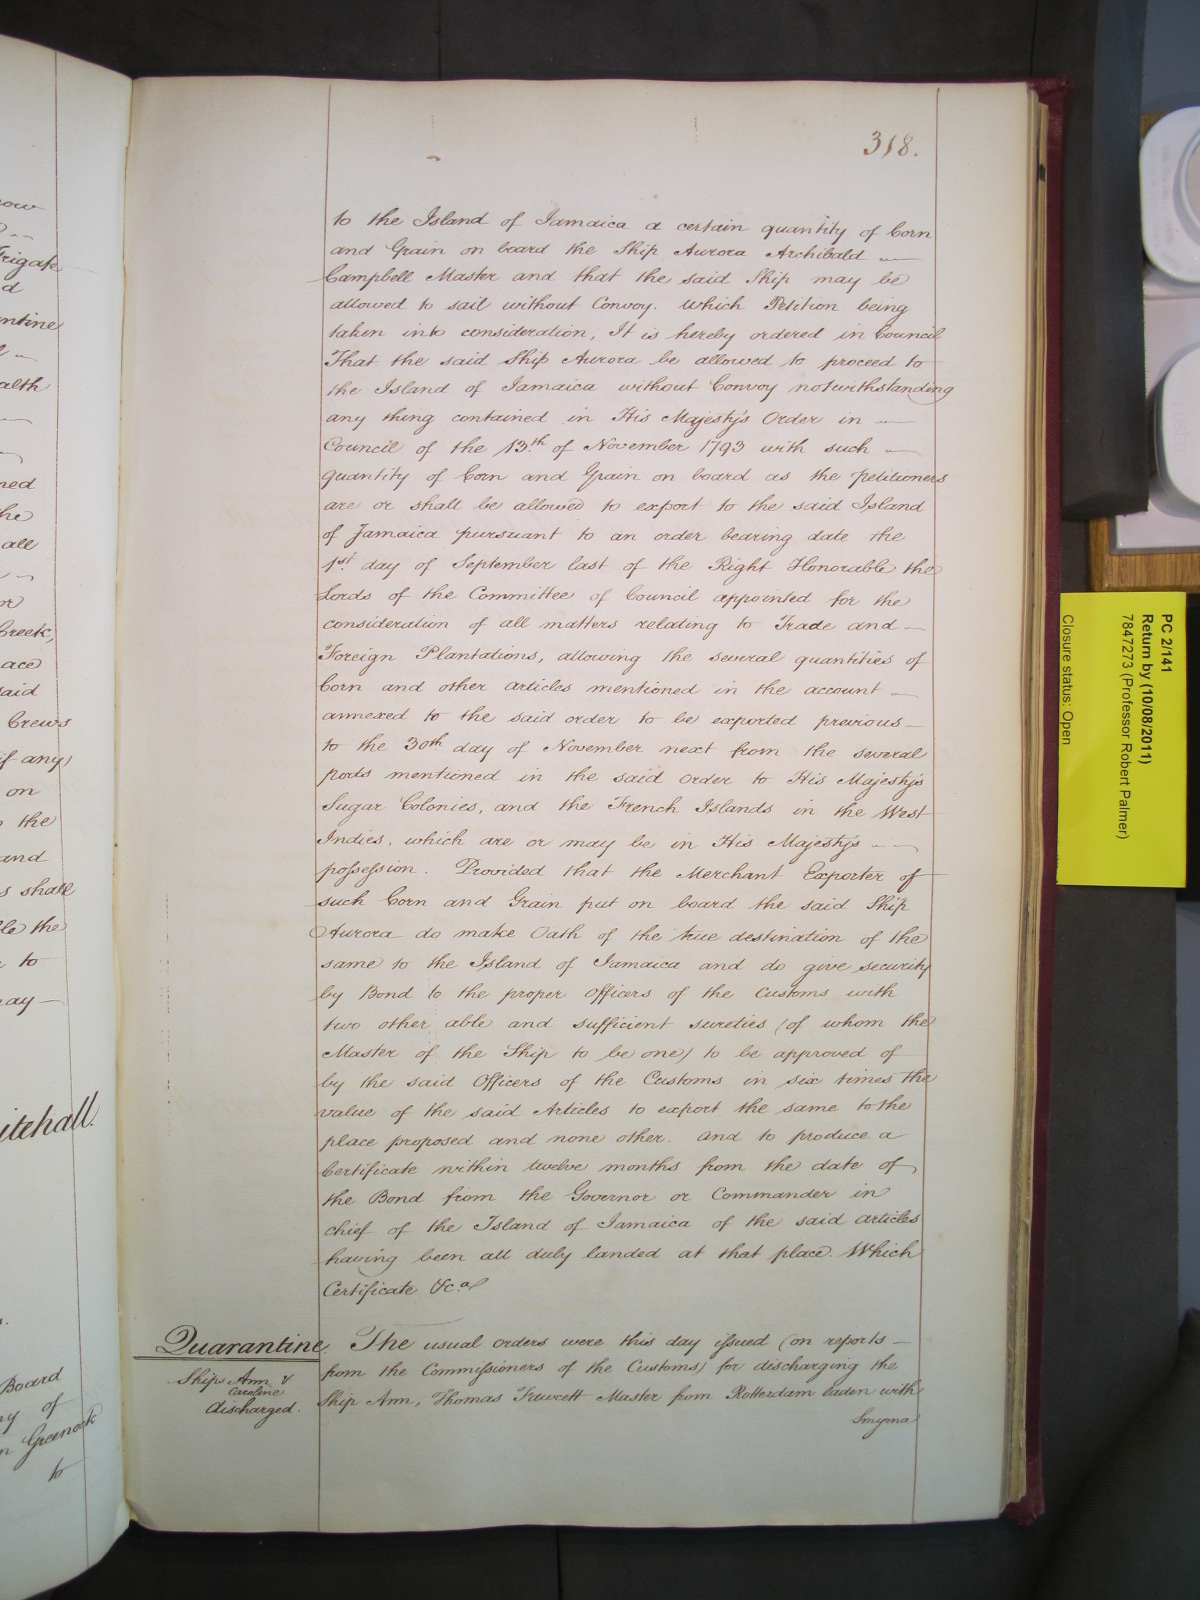 318.
to the Island of Jamaica a certain quantity of Corn
and Grain on board the Ship Aurora Archibald
Campbell Master and that the said Ship may be
allowed to sail without Convoy. Which Petition being
taken into consideration, It is hereby ordered in Council
That the said Ship Aurora be allowed to proceed to
the Island of Jamaica without Convoy notwithstanding
any thing contained in His Majesty's Order in
Council of the 13.th of November 1793 with such
quantity of Corn and Grain on board as the petitioners
are or shall be allowed to export to the said Island
of Jamaica pursuant to an order bearing date the
1st day of September last of the Right Honorable the
Lords of the Committee of Council appointed for the
consideration of all matters relating to Trade and
Foreign Plantations, allowing the several quantities of
Corn and other articles mentioned in the account
annexed to the said order to be exported previous
to the 30th day of November next from the several
ports mentioned in the said order to His Majesty's
Sugar Colonies, and the French Islands in the West
Indies, which are or may be in His Majesty's
possession. Provided that the Merchant Exporter of
such Corn and Grain put on board the said Ship
Aurora do make Oath of the true destination of the
same to the Island of Jamaica and do give security
by Bond to the proper Officers of the Customs with
two other able and sufficient sureties (of whom the
Master of the Ship to be one) to be approved of
by the said Officers of the Customs in six times the
value of the said Articles to export the same to the
place proposed and none other. And to produce a
Certificate within twelve months from the date of
the Bond from the Governor or Commander in
chief of the Island of Jamaica of the said articles
having been all duly landed at that place. Which
Certificate &c.a
Quarantine.
Ships Ann &
Caroline
discharged.
The usual orders were this day issued (on reports
from the Commissioners of the Customs) for discharging the
Ship Ann, Thomas Fawcett Master from Rotterdam laden with
Smyrna
rigate
ntine
alth
ned
the
all
or
Creek,
ace
said
Crews
if any)
on
the
and
s shall
le the
to
ay
itehall.
Board
of
Greenock
to
PC 2/141
Return by (10/08/2011)
7847273 (Professor Robert Palmer)
Closure status: Open